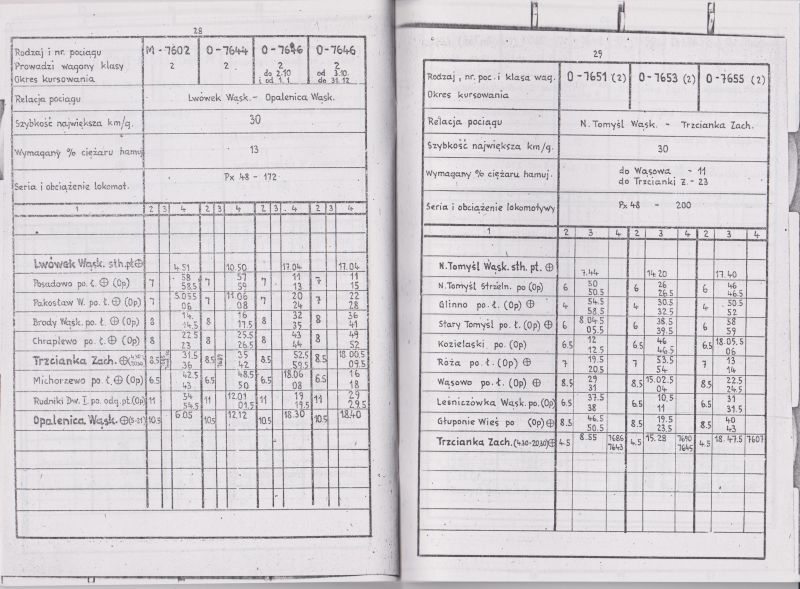 28
Rodzaj i nr. pociągu M-7602 O-7644 O-7646 O-7646
Prowadzi wagony klasy 2 2 2 2
Okres kursowania do 2.10 i od 1.1. od 3.10. do 31.12
Relacja pociągu Lwówek Wąsk. - Opalenica Wąsk.
Szybkość największa km/g. 30
Wymagany % ciężaru hamuj. 13
Seria i obciążenie lokomot. Px 48 - 172
1 2 3 4 2 3 4 2 3 4 2 3 4
Lwówek Wąsk. sth. pt ⊕ 4.51 10.50 17.04 17.04
Posadowo po. ł. ⊕ (Op) 7 58 58.5 7 57 59 7 11 13 7 11 15
Pakosław W. po. ł. ⊕ (Op) 7 5.05.5 06 7 11.06 08 7 20 24 7 22 28
Brody Wąsk. po. ł. ⊕ (Op) 8 14. 14.5 8 16 17.5 8 32 35 8 36 41
Chraplewo po. ł. ⊕ (Op) 8 22.5 23 8 25.5 26.5 8 43 44 8 49 52
Trzcianka Zach. ⊕ 8.5 31.5 36 8.5 35 42 8.5 52.5 59.5 8.5 18.00.5 09.5
Michorzewo po ł. ⊕ (Op) 6.5 42.5 43 6.5 48.5 50 6.5 18.06 08 6.5 16 18
Rudniki Dw. I. po. odg. pt. (Op) 11 54.5 11 12.01 01.5 11 19 19.5 11 29 29.5
Opalenica Wąsk. ⊕ 10.5 6.05 10.5 12.12 10.5 18.30 10.5 18.40
29
Rodzaj, nr. poc. i klasa wag. O-7651 (2) O-7653 (2) O-7655 (2)
Okres kursowania
Relacja pociągu N. Tomyśl Wąsk. - Trzcianka Zach.
Szybkość największa km/g. 30
Wymagany % ciężaru hamuj. do Wąsowa - 11
do Trzcianki Z. - 23
Seria i obciążenie lokomotywy Px 48 - 200
1 2 3 4 2 3 4 2 3 4
N. Tomyśl Wąsk. sth. pt. ⊕ 7.44 14.20 17.40
N. Tomyśl Strzeln. po (Op) 6 50 50.5 6 26 26.5 6 46 46.5
Glinno po. ł. (Op) ⊕ 4 54.5 58.5 4 30.5 32.5 4 50.5 52
Stary Tomyśl po. ł. (Op) ⊕ 6 8.04.5 05.5 6 38.5 39.5 6 58 59
Kozielaski po. (Op) 6.5 12 12.5 6.5 46 46.5 6.5 18.05.5 06
Róża po. ł. (Op) ⊕ 7 19.5 20.5 7 53.5 54 7 13 14
Wąsowo po. ł. (Op) ⊕ 8.5 29 31 8.5 15.02.5 04 8.5 22.5 24.5
Leśniczówka Wąsk. po. (Op) 6.5 37.5 38 6.5 10.5 11 6.5 31 31.5
Głuponie Wieś po (Op) ⊕ 8.5 46.5 50.5 8.5 19.5 23.5 8.5 40 43
Trzcianka Zach. (4.30-20.30) ⊕ 4.5 8.55 7686 7643 4.5 15.28 7690 7645 4.5 18.47.5 7607